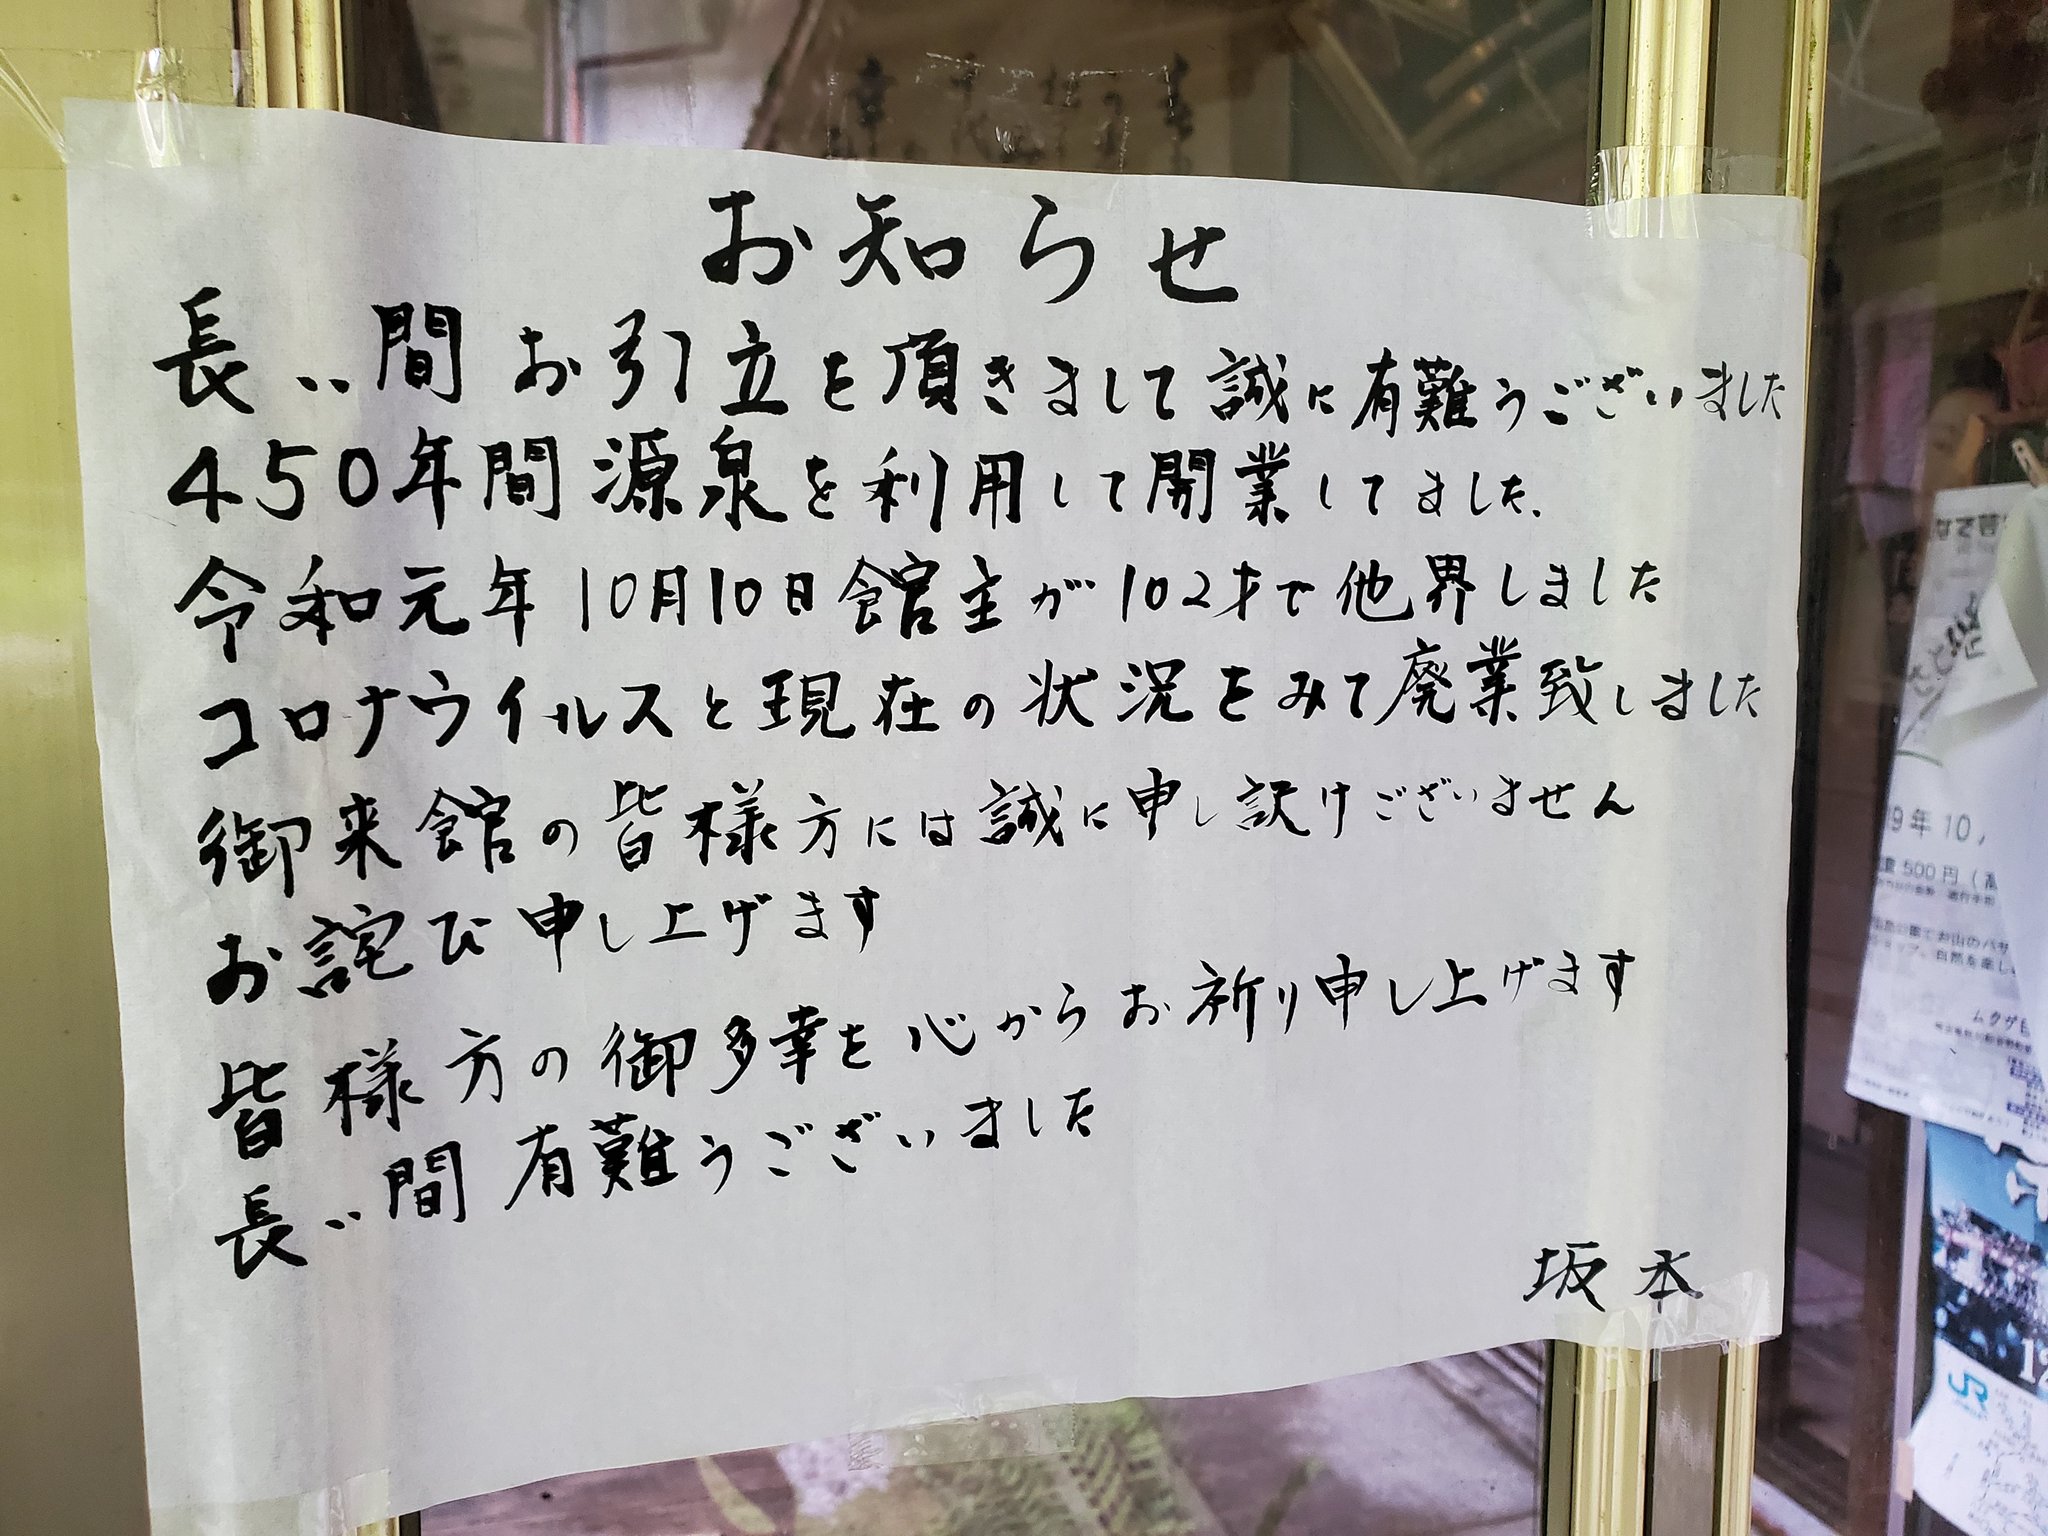 お知らせ
長い間お引立を頂きまして誠に有難うございました
450年間源泉を利用して開業してました.
令和元年10月10日館主が102才で他界しました
コロナウイルスと現在の状況をみて廃業致しました
御来館の皆様方には誠に申し訳けございません
お詫び申し上げます
皆様方の御多幸を心からお祈り申し上げます
長い間有難うございました
坂本
9年10
500円(高
JR